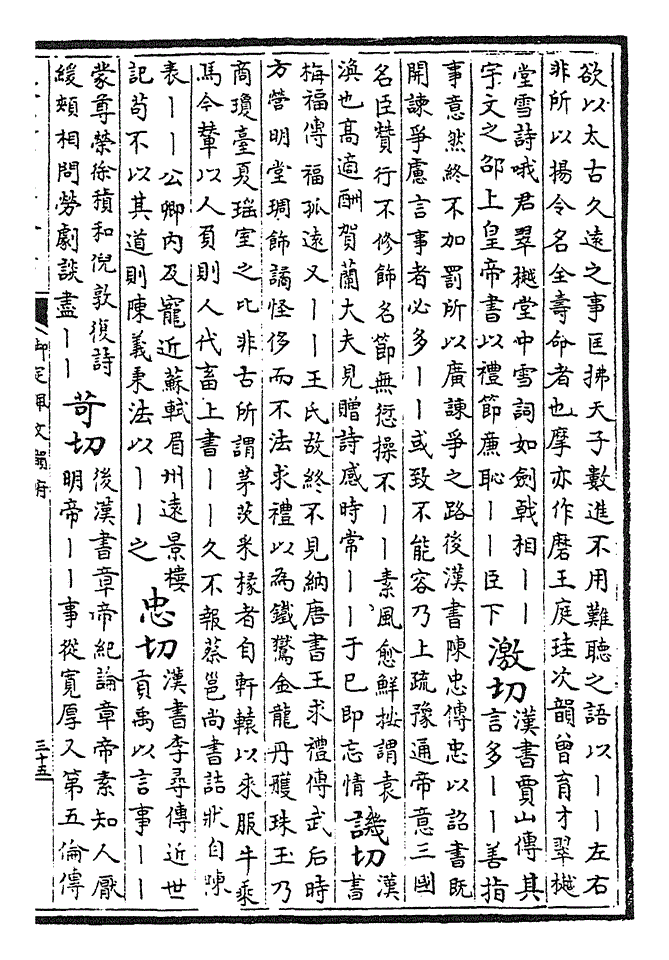 欲以太古久遠之事匡拂天子數進不用難聽之語以丨丨左右
非所以揚令名全壽命者也摩亦作磨王庭珪次韻曾育才翠樾
堂雪詩哦君翠樾堂中雪詞如劍戟相丨丨
宇文之邵上皇帝書以禮節廉恥丨丨臣下
激切
漢書賈山傳其
言多丨丨善指
事意然終不加罰所以廣諫爭之路後漢書陳忠傳忠以詔書既
開諫爭慮言事者必多丨丨或致不能容乃上疏豫通帝意三國
名臣贊行不修飾名節無愆操不丨丨素風愈鮮按謂袁
渙也高適酬賀蘭大夫見贈詩感時常丨丨于已即忘情
譏切
漢
書
梅福傳福孤遠又丨丨王氏故終不見納唐書王求禮傳武后時
方營明堂琱飾譎怪侈而不法求禮以為鐵鷟金龍丹雘珠玉乃
商瓊臺夏瑤室之比非古所謂茅茨采椽者自軒轅以來服牛乘
馬今輦以人負則人代畜上書丨丨久不報蔡邕尚書詰狀自陳
表丨丨公卿內及寵近蘇軾眉州遠景樓
記苟不以其道則陳義秉法以丨丨之
忠切
漢書李尋傳近世
貢禹以言事丨丨
蒙尊榮徐積和倪敦復詩
緩頰相問勞劇談盡丨丨
苛切
後漢書章帝紀論章帝素知人厭
明帝丨丨事從寬厚又第五倫傳
御定佩文韻府
三十五